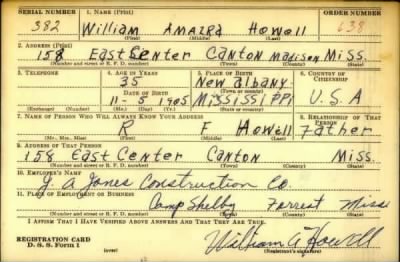 SERIAL NUMBER 1. NAME (Print) ORDER NUMBER
382 William Amazra Howell 638
(First) (Middle) (Last)
2. ADDRESS (Print)
158 East Center Canton Madison Miss.
(Number and street or R. F. D. number) (Town) (County) (State)
3. TELEPHONE 4. AGE IN YEARS 5. PLACE OF BIRTH 6. COUNTRY OF CITIZENSHIP
35 New albany
DATE OF BIRTH (Town or county)
11-5 1905 Mississippi U.S.A
(Exchange) (Number) (Mo.) (Day) (Yr.) (State or country)
7. NAME OF PERSON WHO WILL ALWAYS KNOW YOUR ADDRESS 8. RELATIONSHIP OF THAT PERSON
R F Howell Father
(Mr., Mrs., Miss) (First) (Middle) (Last)
9. ADDRESS OF THAT PERSON
158 East Center Canton Miss.
(Number and street or R. F. D. number) (Town) (County) (State)
10. EMPLOYER'S NAME
J. A. Jones Construction Co.
11. PLACE OF EMPLOYMENT OR BUSINESS
Camp Shelby Forrest Miss
(Number and street or R. F. D. number) (Town) (County) (State)
I AFFIRM THAT I HAVE VERIFIED ABOVE ANSWERS AND THAT THEY ARE TRUE.
REGISTRATION CARD
D. S. S. Form 1 (over) William A Howell
(Registrant's signature)